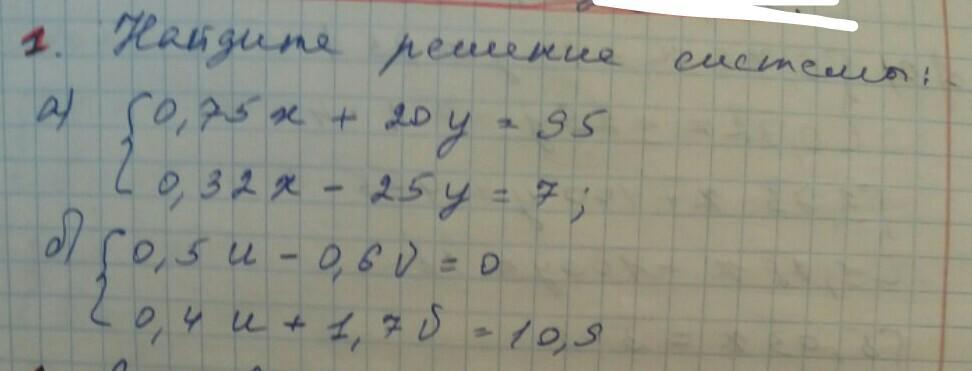 1. Найдите решение системы:
а) { 0,75x + 20y = 95
0,32x - 25y = 7;
б) { 0,5u - 0,6v = 0
0,4u + 1,7v = 10,9